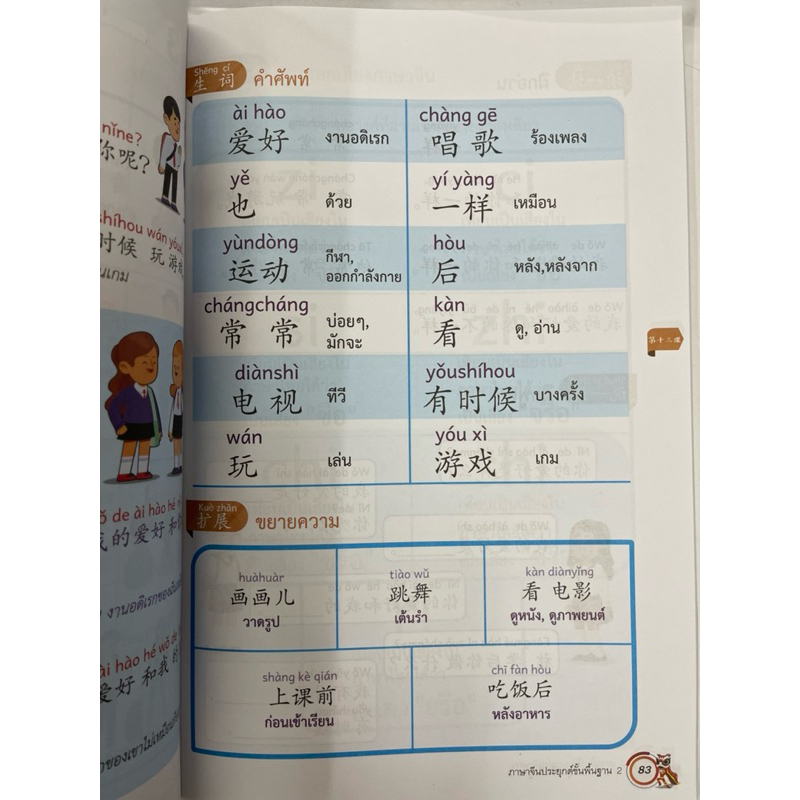 nǐne?
你呢?
shíhou wán yóuxì
时候 玩 游戏
นเกม
ǒ de ài hào hé n
我 的 爱 好 和
งานอดิเรกของฉันเ
ài hào hé wǒ de
爱 好 和 我 的
Shēng cí
生 词 คำศัพท์
ài hào
爱好 งานอดิเรก
chàng gē
唱 歌 ร้องเพลง
yě
也 ด้วย
yí yàng
一样 เหมือน
yùndòng
运动 กีฬา,
ออกกำลังกาย
hòu
后 หลัง,หลังจาก
chángcháng
常 常 บ่อยๆ,
มักจะ
kàn
看 ดู, อ่าน
diànshì
电 视 ทีวี
yǒushíhou
有时候 บางครั้ง
wán
玩 เล่น
yóu xì
游戏 เกม
第十三课
Kuò zhǎn
扩展 ขยายความ
huàhuàr
画画儿
วาดรูป
tiào wǔ
跳舞
เต้นรำ
kàn diànyǐng
看 电影
ดูหนัง, ดูภาพยนต์
shàng kè qián
上课前
ก่อนเข้าเรียน
chī fàn hòu
吃饭后
หลังอาหาร
ภาษาจีนประยุกต์ขั้นพื้นฐาน 2 83